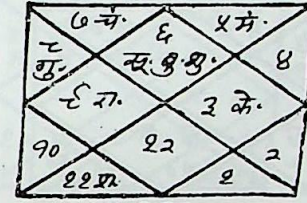 ७ चं. ६ ५ मं.
८
गु. सू. बु. शु. ४
९ रा. ३ के.
१० १२ २
११ श. १